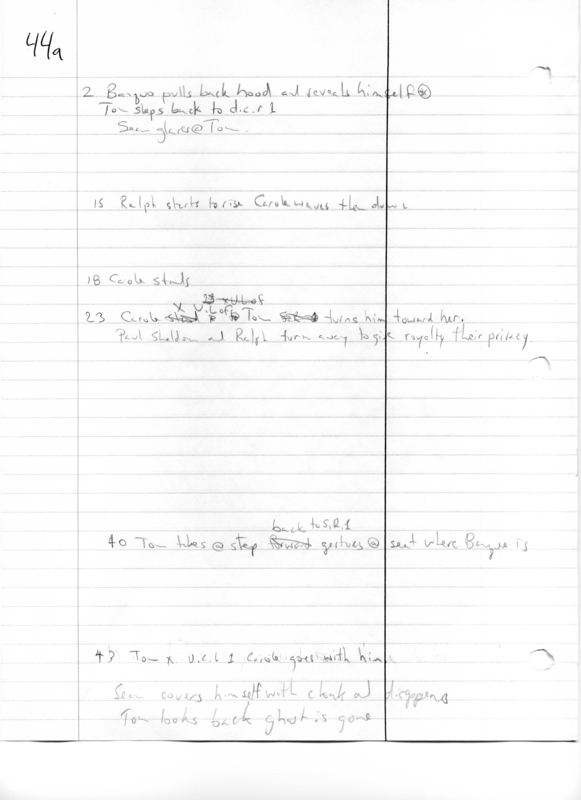 44a
2 Banquo pulls back hood and reveals himself
Tom steps back to d.c.r 1
Sean glares @ Tom.
15 Ralph starts to rise Carole waves them down
18 Carole stands
23 Carole X U.L of Tom turns him toward her.
Paul Sheldon and Ralph turn away to give royalty their privacy
back to S.R.1
40 Tom takes a step forward gestures @ seat where Banquo is
43 Tom x U.C.L 1 Carole goes with him
Sean covers himself with cloak and disappears
Tom looks back ghost is gone